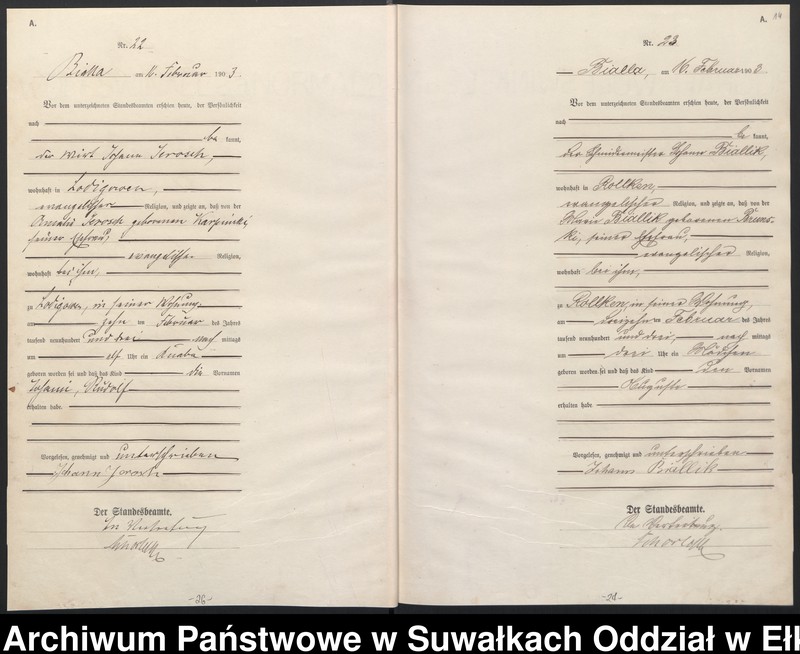 A.
Nr. 22
Bialla am 11. Februar 1903.
Vor dem unterzeichneten Standesbeamten erschien heute, der Persönlichkeit
nach
be kannt,
der Wirt Johann Jerosch,
wohnhaft in
evangelischer Religion, und zeigte an, daß von der
Amalie Jerosch geborenen Karpinski,
seiner Ehefrau,
evangelischer Religion,
wohnhaft bei ihm,
zu in seiner Wohnung
am zehn ten Februar des Jahres
tausend neunhundert und drei nach mittags
um elf Uhr ein Knabe
geboren worden sei und daß das Kind die Vornamen
Johann, Rudolf
erhalten habe.
Vorgelesen, genehmigt und unterschrieben
Johann Jerosch
Der Standesbeamte.
In Vertretung
-26-
A. 14
Nr. 23
Bialla, am 16. Februar 1903
Vor dem unterzeichneten Standesbeamten erschien heute, der Persönlichkeit
nach
be kannt,
der Schneidermeister Johann Biallik,
wohnhaft in Rollken,
evangelischer Religion, und zeigte an, daß von der
Biallik geborenen
ki, seiner Ehefrau,
evangelischer Religion,
wohnhaft bei ihm,
zu Rollken, in seiner Wohnung,
am dreizehn ten Februar des Jahres
tausend neunhundert und drei, nach mittags
um drei Uhr ein Mädchen
geboren worden sei und daß das Kind den Vornamen
Auguste
erhalten habe
Vorgelesen, genehmigt und unterschrieben
Johann Biallik
Der Standesbeamte.
In Vertretung.
Archiwum Państwowe w Suwałkach Oddział w Ełk